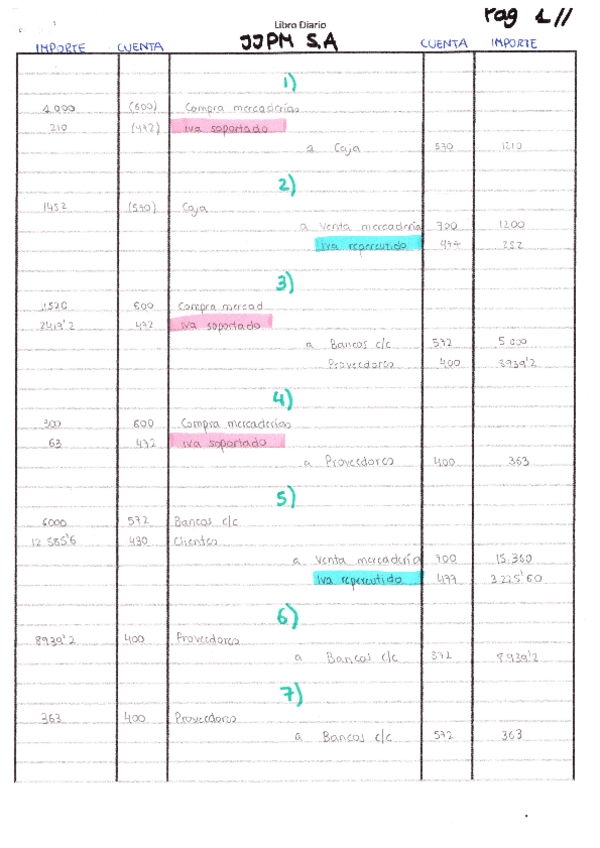 Pag 1//
Libro Diario
JJPM S.A
IMPORTE CUENTA CUENTA IMPORTE
1)
1 000 (600) Compra mercaderías
210 (472) iva soportado
a Caja 570 1210
2)
1452 (570) Caja
a Venta mercadería 700 1200
iva repercutido 477 252
3)
600 Compra mercad
472 iva soportado
a Bancos c/c 572 5 000
Proveedores 400 8939'2
4)
300 600 Compra mercaderías
63 472 iva soportado
a Proveedores 400 363
5)
6000 572 Bancos c/c
12 585'6 430 Clientes
a Venta mercadería 700 15 360
iva repercutido 477 3 225'60
6)
8939'2 400 Proveedores
a Bancos c/c 572 8939'2
7)
363 400 Proveedores
a Bancos c/c 572 363